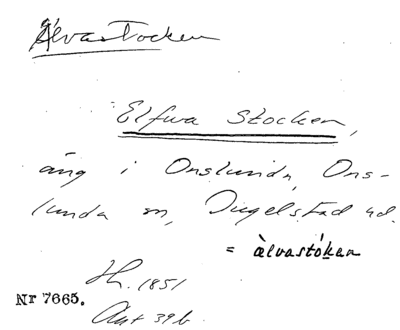 Älvastocken
Elfwa Stocken,
äng i Onslunda, Ons-
lunda sn, Ingelstad hd.
= àlvastókan
Nr 7665.
1851
39 b